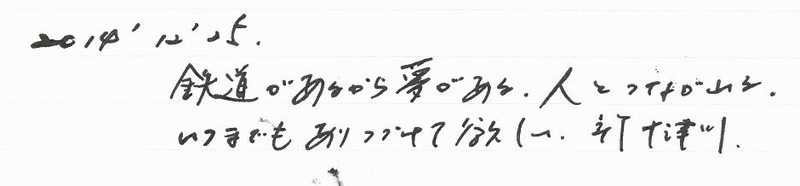 2014' 12' 25.
鉄道があるから愛がある、人とつながれる。
いつまでもありつづけて欲しい、新十津川。